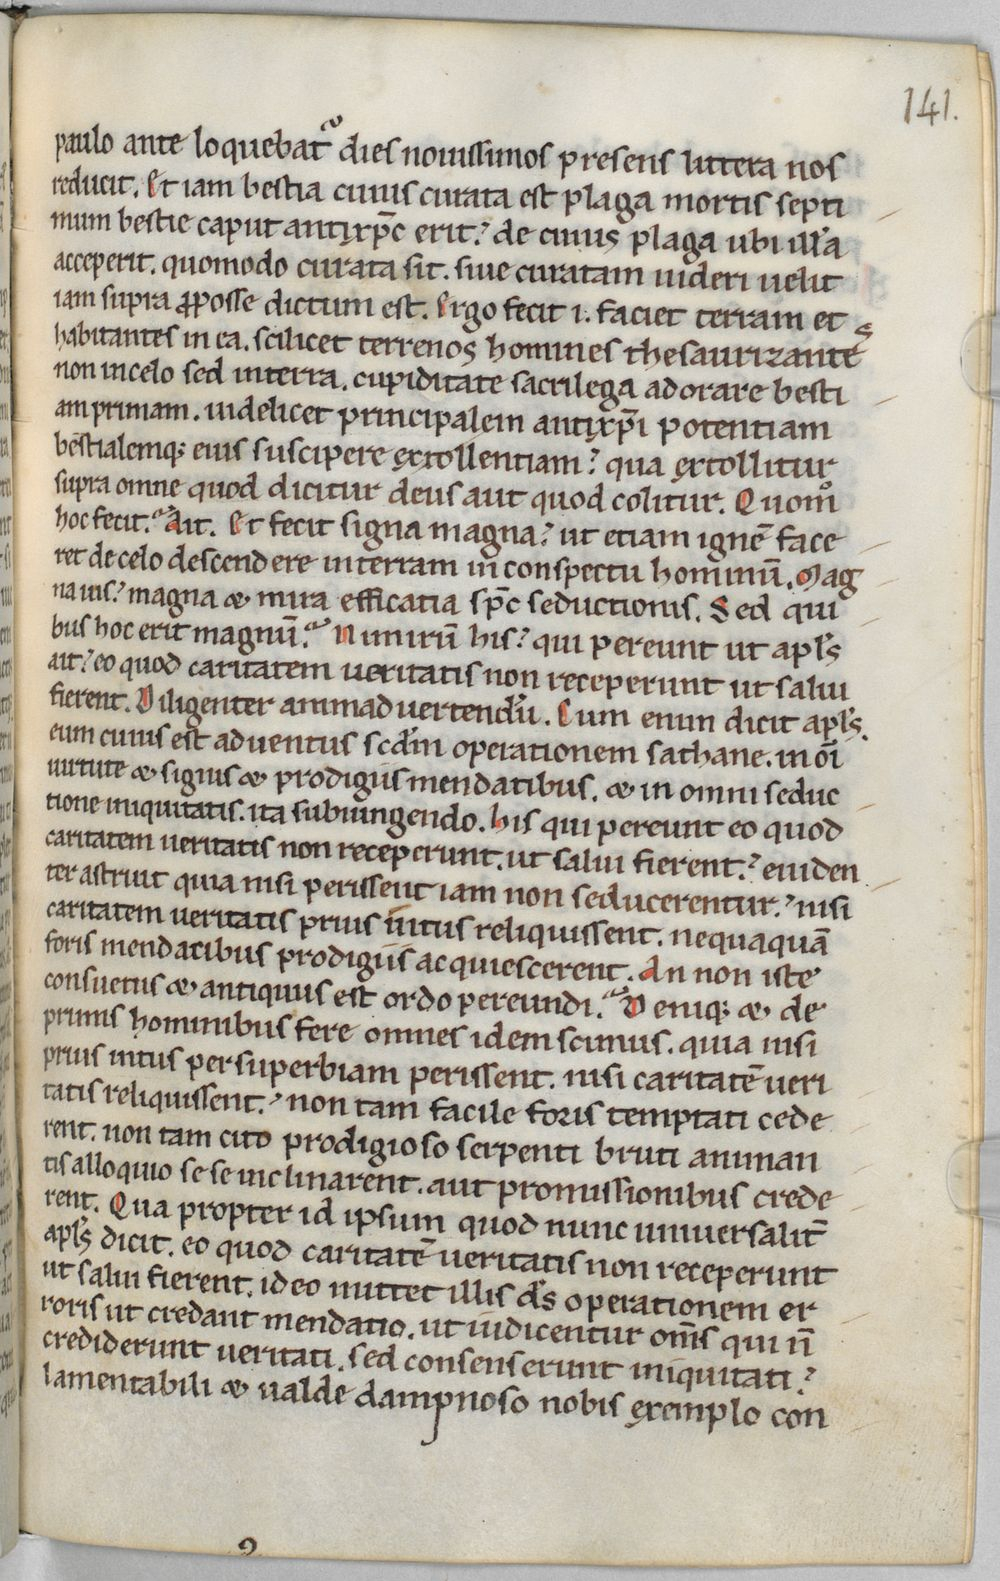 141.
paulo ante loquebat᷑ dies nouissimos presens littera nos
reducit. Et iam bestia cuius curata est plaga mortis septi
mum bestie caput antixp̄c erit. de cuius plaga ubi illa᷑
acceperit. quomodo curata sit. siue curatam uideri uelit
iam supra ꝓposse dictum est. Ergo fecit .i. faciet terram et
habitantes in ea. scilicet terrenos homines thesaurizantes
non in celo sed in terra. cupiditate sacrilega adorare besti
am primam. uidelicet principalem antixp̄i potentiam
bestialemq; eius suscipere extollentiam? qua extollitur
supra omne quod dicitur deus aut quod colitur. Quom̊
hoc fecit? Ait. Et fecit signa magna? ut etiam ignē face
ret de celo descendere in terram in conspectu hominū. Mag
na uis? magna & mira efficatia sp̄c seductionis. Sed qui
bus hoc erit magnū? Nimirū his? qui pereunt ut apl̓s
ait? eo quod caritatem ueritatis non receperunt ut salui
fierent. Diligenter animaduertendū. Cum enim dicit apl̓s.
eum cuius est aduentus scd̓m operationem sathane. in om̄i
uirtute & signis & prodigiis mendatibus. & in omni seduc
tione iniquitatis. ita subiungendo. his qui pereunt eo quod
caritatem ueritatis non receperunt. ut salui fierent? euiden
ter astruit quia nisi perissent iam non seducerentur? nisi
caritatem ueritatis prius intus reliquissent. nequaquā
foris mendatibus prodigiis acquiescerent. An non iste
consuetus & antiquus est ordo pereundi? Deniq; & de
primis hominibus fere omnes idem scimus. quia nisi
prius intus per superbiam perissent. nisi caritatē ueri
tatis reliquissent? non tam facile foris temptati cede
rent. non tam cito prodigioso serpenti bruti animan
tis alloquio sese inclinarent. aut promissionibus crede
rent. Qua propter id ipsum quod nunc uniuersalit̄
apl̓s dicit. eo quod caritatē ueritatis non receperunt
ut salui fierent. ideo mittet illis d̄s operationem er
roris ut credant mendatio. ut iudicentur om̄s qui n̄
crediderunt ueritati. sed consenserunt iniquitati?
lamentabili & ualde dampnoso nobis exemplo con